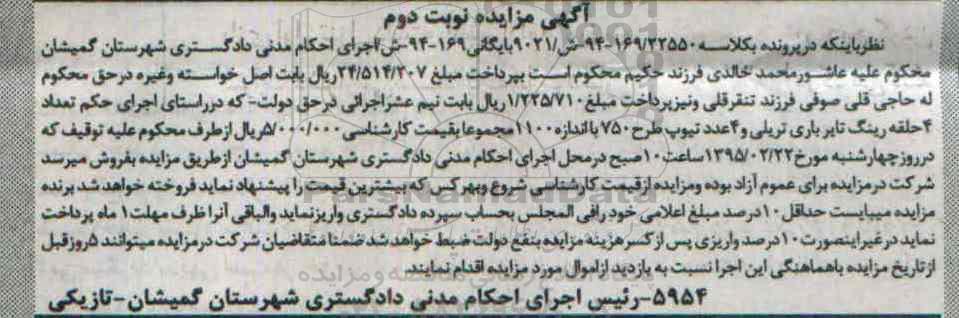 آگهی مزایده نوبت دوم
نظرباینکه درپرونده بکلاسه ۹۴-۱۶۹/۲۲۵۵۰-ش/۹۰۲۱بایگانی۱۶۹-۹۴-ش۱اجرای احکام مدنی دادگستری شهرستان گمیشان
محکوم علیه عاشورمحمد خالدی فرزند حکیم محکوم است بپرداخت مبلغ ۲۴/۵۱۴/۲۰۷ریال بابت اصل خواسته وغیره درحق محکوم
له حاجی قلی صوفی فرزند تنقرقلی ونیزپرداخت مبلغ۱/۲۲۵/۷۱۰ریال بابت نیم عشراجرائی درحق دولت- که درراستای اجرای حکم تعداد
۴حلقه رینگ تایر باری تریلی و۴عدد تیوپ طرح۷۵۰ بااندازه۱۱۰۰مجموعا بقیمت کارشناسی ۵/۰۰۰/۰۰۰ریال ازطرف محکوم علیه توقیف که
درروزچهارشنبه مورخ۱۳۹۵/۰۲/۲۲ساعت۱۰صبح درمحل اجرای احکام مدنی دادگستری شهرستان گمیشان ازطریق مزایده بفروش میرسد
شرکت درمزایده برای عموم آزاد بوده ومزایده ازقیمت کارشناسی شروع وبهرکس که بیشترین قیمت را پیشنهاد نماید فروخته خواهد شد برنده
مزایده میبایست حداقل۱۰درصد مبلغ اعلامی خود رافی المجلس بحساب سپرده دادگستری واریزنماید والباقی آنرا ظرف مهلت۱ ماه پرداخت
نماید درغیراینصورت۱۰درصد واریزی پس ازکسرهزینه مزایده بنفع دولت ضبط خواهد شد ضمنا متقاضیان شرکت درمزایده میتوانند ۵روزقبل
ازتاریخ مزایده باهماهنگی این اجرا نسبت به بازدید ازاموال مورد مزایده اقدام نمایند.
۵۹۵۴-رئیس اجرای احکام مدنی دادگستری شهرستان گمیشان-تازیکی
ParsNamadData